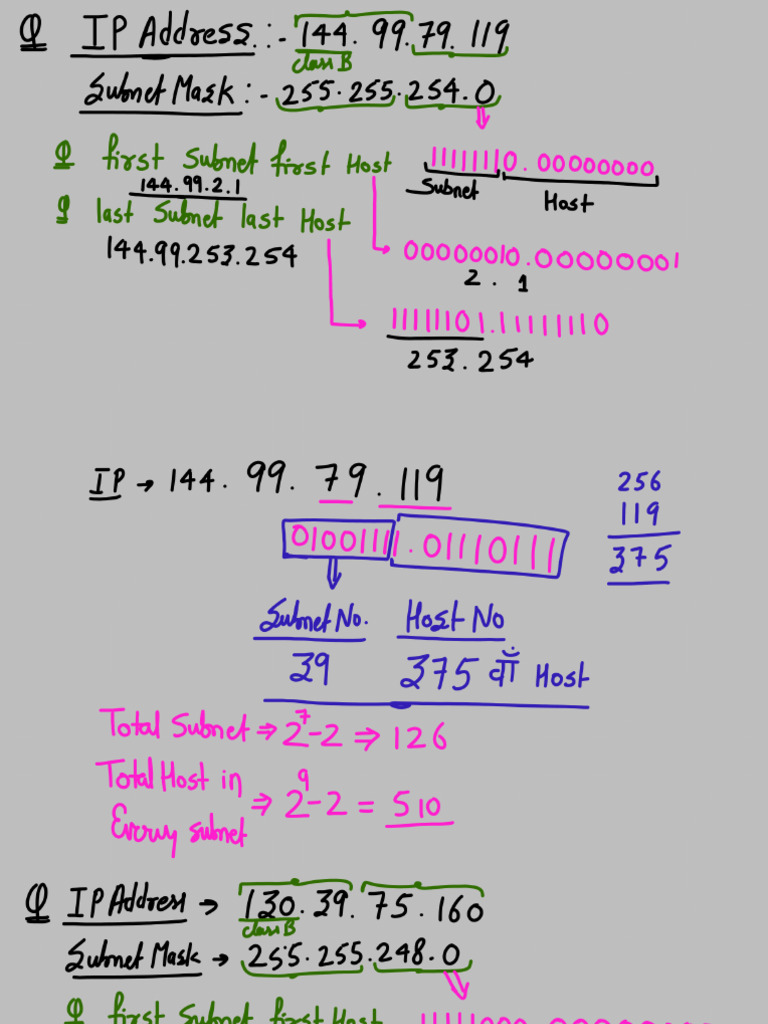 Q IP Address :- 144. 99. 79. 119
class B
Subnet Mask :- 255.255.254.0
Q first Subnet first Host
11111110.00000000
144.99.2.1
Subnet Host
Q last Subnet last Host
144.99.253.254
00000010.00000001
2 . 1
11111101.11111110
253.254
IP → 144. 99. 79. 119
256
119
375
0100111 1.01110111
Subnet No. Host No
39 375 वाँ Host
Total Subnet ⇒ 2^7-2 ⇒ 126
Total Host in
Every subnet ⇒ 2^9-2 = 510
Q IP Address → 130.39.75.160
class B
Subnet Mask → 255.255.248.0
Q first Subnet first Host